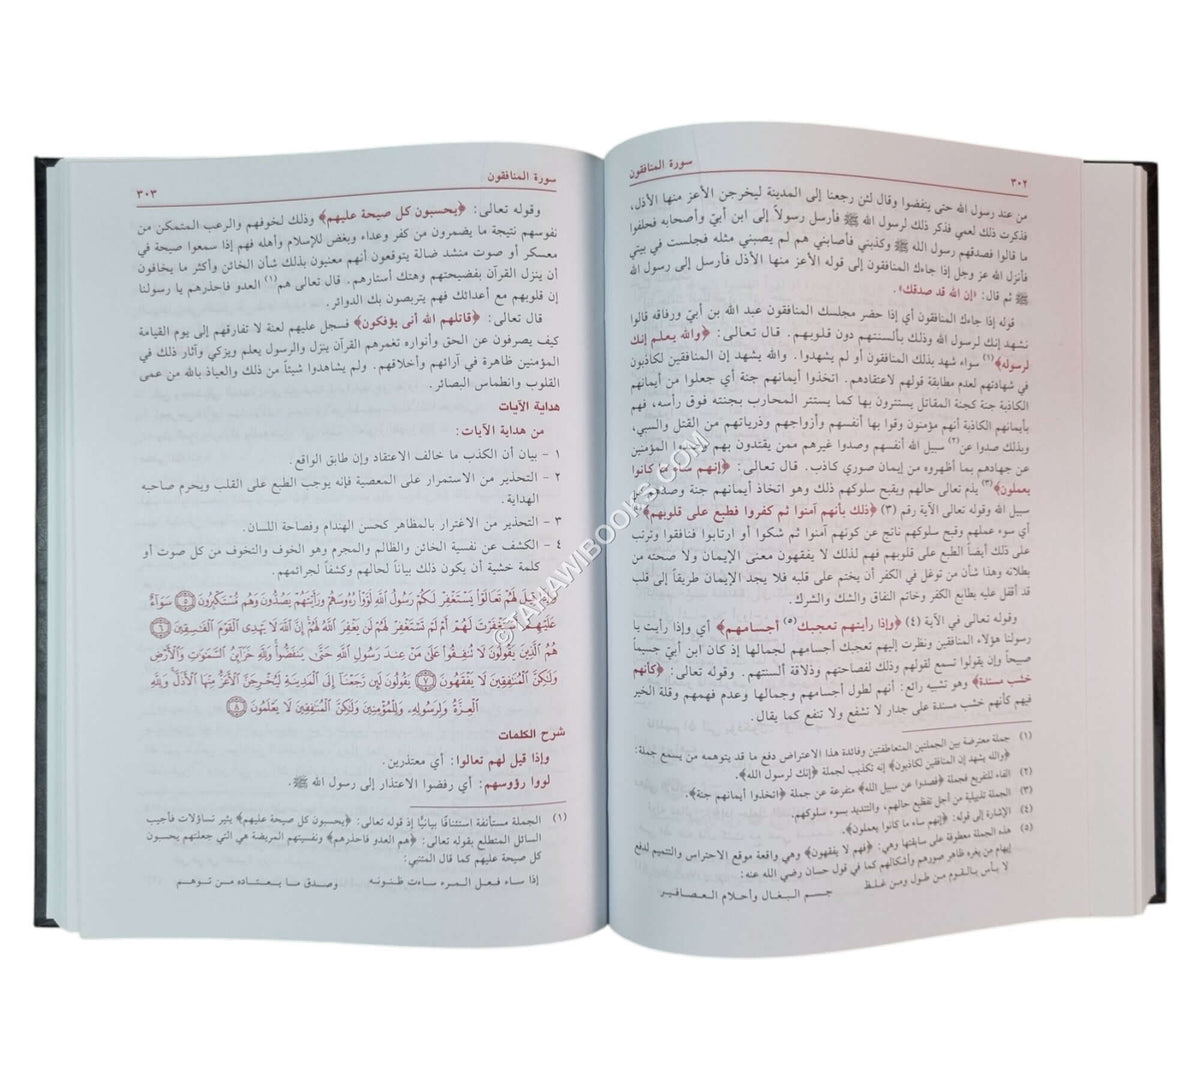 سورة المنافقون ٣٠٢
من عند رسول الله حتى ينفضوا وقال لئن رجعنا إلى المدينة ليخرجن الأعز منها الأذل،
فذكرت ذلك لعمي فذكر ذلك لرسول الله ﷺ فأرسل رسولاً إلى ابن أبيّ وأصحابه فحلفوا
ما قالوا فصدقهم رسول الله ﷺ وكذبني فأصابني هم لم يصبني مثله فجلست في بيتي
فأنزل الله عز وجل إذا جاءك المنافقون إلى قوله الأعز منها الأذل فأرسل إلى رسول الله
ﷺ ثم قال: «إن الله قد صدقك».
قوله إذا جاءك المنافقون أي إذا حضر مجلسك المنافقون عبد الله بن أبيّ ورفاقه قالوا
نشهد إنك لرسول الله وذلك بألسنتهم دون قلوبهم. قال تعالى: ﴿والله يعلم إنك
لرسوله﴾(١) سواء شهد بذلك المنافقون أو لم يشهدوا. والله يشهد إن المنافقين لكاذبون
في شهادتهم لعدم مطابقة قولهم لاعتقادهم. اتخذوا أيمانهم جنة أي جعلوا من أيمانهم
الكاذبة جنة كجنة المقاتل يستترون بها كما يستتر المحارب بجنته فوق رأسه، فهم
بأيمانهم الكاذبة أنهم مؤمنون وقوا بها أنفسهم وأزواجهم وذرياتهم من القتل والسبي،
وبذلك صدوا عن(٢) سبيل الله أنفسهم وصدوا غيرهم ممن يقتدون بهم وصدوا المؤمنين
عن جهادهم بما أظهروه من إيمان صوري كاذب. قال تعالى: ﴿إنهم ساء ما كانوا
يعملون﴾(٣) يذم تعالى حالهم ويقبح سلوكهم ذلك وهو اتخاذ أيمانهم جنة وصدهم عن
سبيل الله وقوله تعالى الآية رقم (٣) ﴿ذلك بأنهم آمنوا ثم كفروا فطبع على قلوبهم﴾(٤)
أي سوء عملهم وقبح سلوكهم ناتج عن كونهم آمنوا ثم شكوا أو ارتابوا فنافقوا وترتب
على ذلك أيضاً الطبع على قلوبهم فهم لذلك لا يفقهون معنى الإيمان ولا صحته من
بطلانه وهذا شأن من توغل في الكفر أن يختم على قلبه فلا يجد الإيمان طريقاً إلى قلب
قد أقفل عليه بطابع الكفر وخاتم النفاق والشك والشرك.
وقوله تعالى في الآية (٤) ﴿وإذا رأيتهم تعجبك(٥) أجسامهم﴾ أي وإذا رأيت يا
رسولنا هؤلاء المنافقين ونظرت إليهم تعجبك أجسامهم لجمالها إذ كان ابن أبيّ جسيماً
صبيحاً وإن يقولوا تسمع لقولهم وذلك لفصاحتهم وذلاقة ألسنتهم. وقوله تعالى: ﴿كأنهم
خشب مسندة﴾ وهو تشبيه رائع: أنهم لطول أجسامهم وجمالها وعدم فهمهم وقلة الخير
فيهم كأنهم خشب مسندة على جدار لا تشفع ولا تنفع كما يقال.
(١) جملة معترضة بين الجملتين المتعاطفتين وفائدة هذا الاعتراض دفع ما قد يتوهمه من يستمع جملة:
﴿والله يشهد إن المنافقين لكاذبون﴾ إنه تكذيب لجملة ﴿إنك لرسول الله﴾.
(٢) الفاء للتفريع فجملة ﴿فصدوا عن سبيل الله﴾ متفرعة عن جملة ﴿اتخذوا أيمانهم جنة﴾.
(٣) الجملة تذييلية من أجل تفظيع حالهم، والتنديد بسوء سلوكهم.
(٤) الإشارة إلى قوله: ﴿إنهم ساء ما كانوا يعملون﴾.
(٥) هذه الجملة معطوفة على سابقتها وهي: ﴿فهم لا يفقهون﴾ وهي واقعة موقع الاحتراس والتتميم لدفع
إيهام من يغره ظاهر صورهم وأشكالهم كما في قول حسان رضي الله عنه:
لا بأس بالقوم من طول ومن غلظ جسم البغال وأحلام العصافير
سورة المنافقون ٣٠٣
وقوله تعالى: ﴿يحسبون كل صيحة عليهم﴾ وذلك لخوفهم والرعب المتمكن من
نفوسهم نتيجة ما يضمرون من كفر وعداء وبغض للإسلام وأهله فهم إذا سمعوا صيحة في
معسكر أو صوت منشد ضالة يتوقعون أنهم معنيون بذلك شأن الخائن وأكثر ما يخافون
أن ينزل القرآن بفضيحتهم وهتك أستارهم. قال تعالى هم(١) العدو فاحذرهم يا رسولنا
إن قلوبهم مع أعدائك فهم يتربصون بك الدوائر.
قال تعالى: ﴿قاتلهم الله أنى يؤفكون﴾ فسجل عليهم لعنة لا تفارقهم إلى يوم القيامة
كيف يصرفون عن الحق وأنواره تغمرهم القرآن ينزل والرسول يعلم ويزكي وآثار ذلك في
المؤمنين ظاهرة في آرائهم وأخلاقهم. ولم يشاهدوا شيئاً من ذلك والعياذ بالله من عمى
القلوب وانطماس البصائر.
هداية الآيات
من هداية الآيات:
١ - بيان أن الكذب ما خالف الاعتقاد وإن طابق الواقع.
٢ - التحذير من الاستمرار على المعصية فإنه يوجب الطبع على القلب ويحرم صاحبه
الهداية.
٣ - التحذير من الاغترار بالمظاهر كحسن الهندام وفصاحة اللسان.
٤ - الكشف عن نفسية الخائن والظالم والمجرم وهو الخوف والتخوف من كل صوت أو
كلمة خشية أن يكون ذلك بياناً لحالهم وكشفاً لجرائمهم.
وَإِذَا قِيلَ لَهُمْ تَعَالَوْا يَسْتَغْفِرْ لَكُمْ رَسُولُ اللَّهِ لَوَّوْا رُءُوسَهُمْ وَرَأَيْتَهُمْ يَصُدُّونَ وَهُم مُّسْتَكْبِرُونَ ٥ سَوَآءٌ
عَلَيْهِمْ أَسْتَغْفَرْتَ لَهُمْ أَمْ لَمْ تَسْتَغْفِرْ لَهُمْ لَن يَغْفِرَ اللَّهُ لَهُمْ إِنَّ اللَّهَ لَا يَهْدِى الْقَوْمَ الْفَٰسِقِينَ ٦
هُمُ الَّذِينَ يَقُولُونَ لَا تُنفِقُوا عَلَىٰ مَنْ عِندَ رَسُولِ اللَّهِ حَتَّىٰ يَنفَضُّوا وَلِلَّهِ خَزَآئِنُ السَّمَٰوَٰتِ وَالْأَرْضِ
وَلَٰكِنَّ الْمُنَٰفِقِينَ لَا يَفْقَهُونَ ٧ يَقُولُونَ لَئِن رَّجَعْنَآ إِلَى الْمَدِينَةِ لَيُخْرِجَنَّ الْأَعَزُّ مِنْهَا الْأَذَلَّ وَلِلَّهِ
الْعِزَّةُ وَلِرَسُولِهِ وَلِلْمُؤْمِنِينَ وَلَٰكِنَّ الْمُنَٰفِقِينَ لَا يَعْلَمُونَ ٨
شرح الكلمات
وإذا قيل لهم تعالوا: أي معتذرين.
لووا رؤوسهم: أي رفضوا الاعتذار إلى رسول الله ﷺ.
(١) الجملة مستأنفة استئنافًا بيانيًّا إذ قوله تعالى: ﴿يحسبون كل صيحة عليهم﴾ يثير تساؤلات فأجيب
السائل المتطلع بقوله تعالى: ﴿هم العدو فاحذرهم﴾ ونفسيتهم المريضة هي التي جعلتهم يحسبون
كل صيحة عليهم كما قال المتنبي:
إذا ساء فعل المرء ساءت ظنونه وصدق ما يعتاده من توهم
©TAHAWIBOOKS.COM